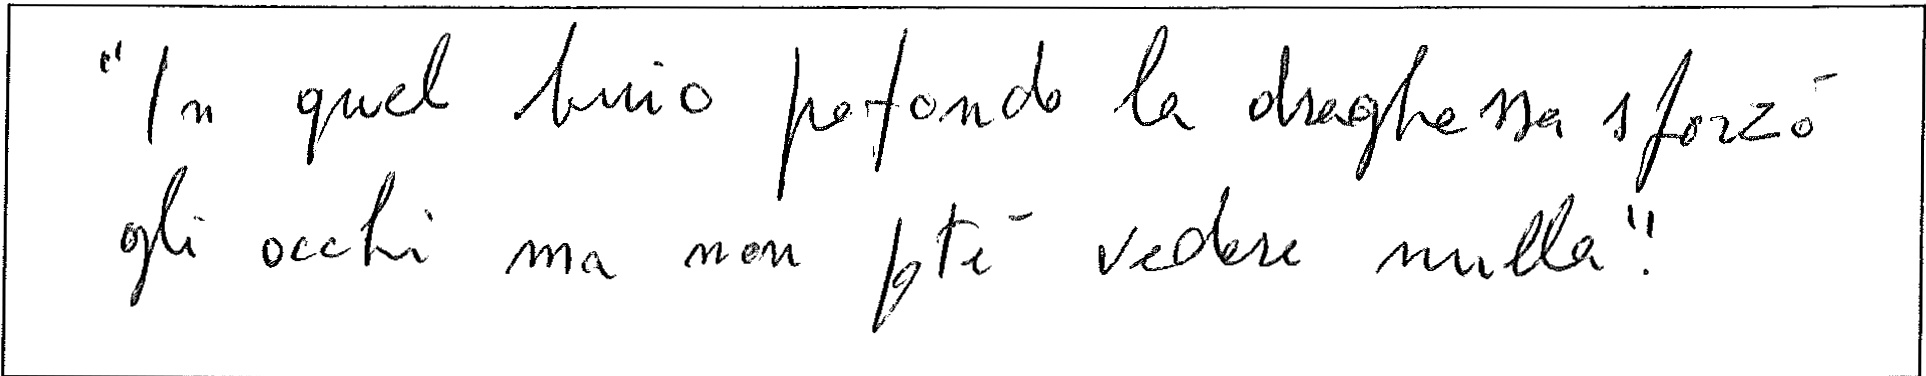 "In quel buio pofondo la draghessa sforzò
gli occhi ma non pté vedere nulla".